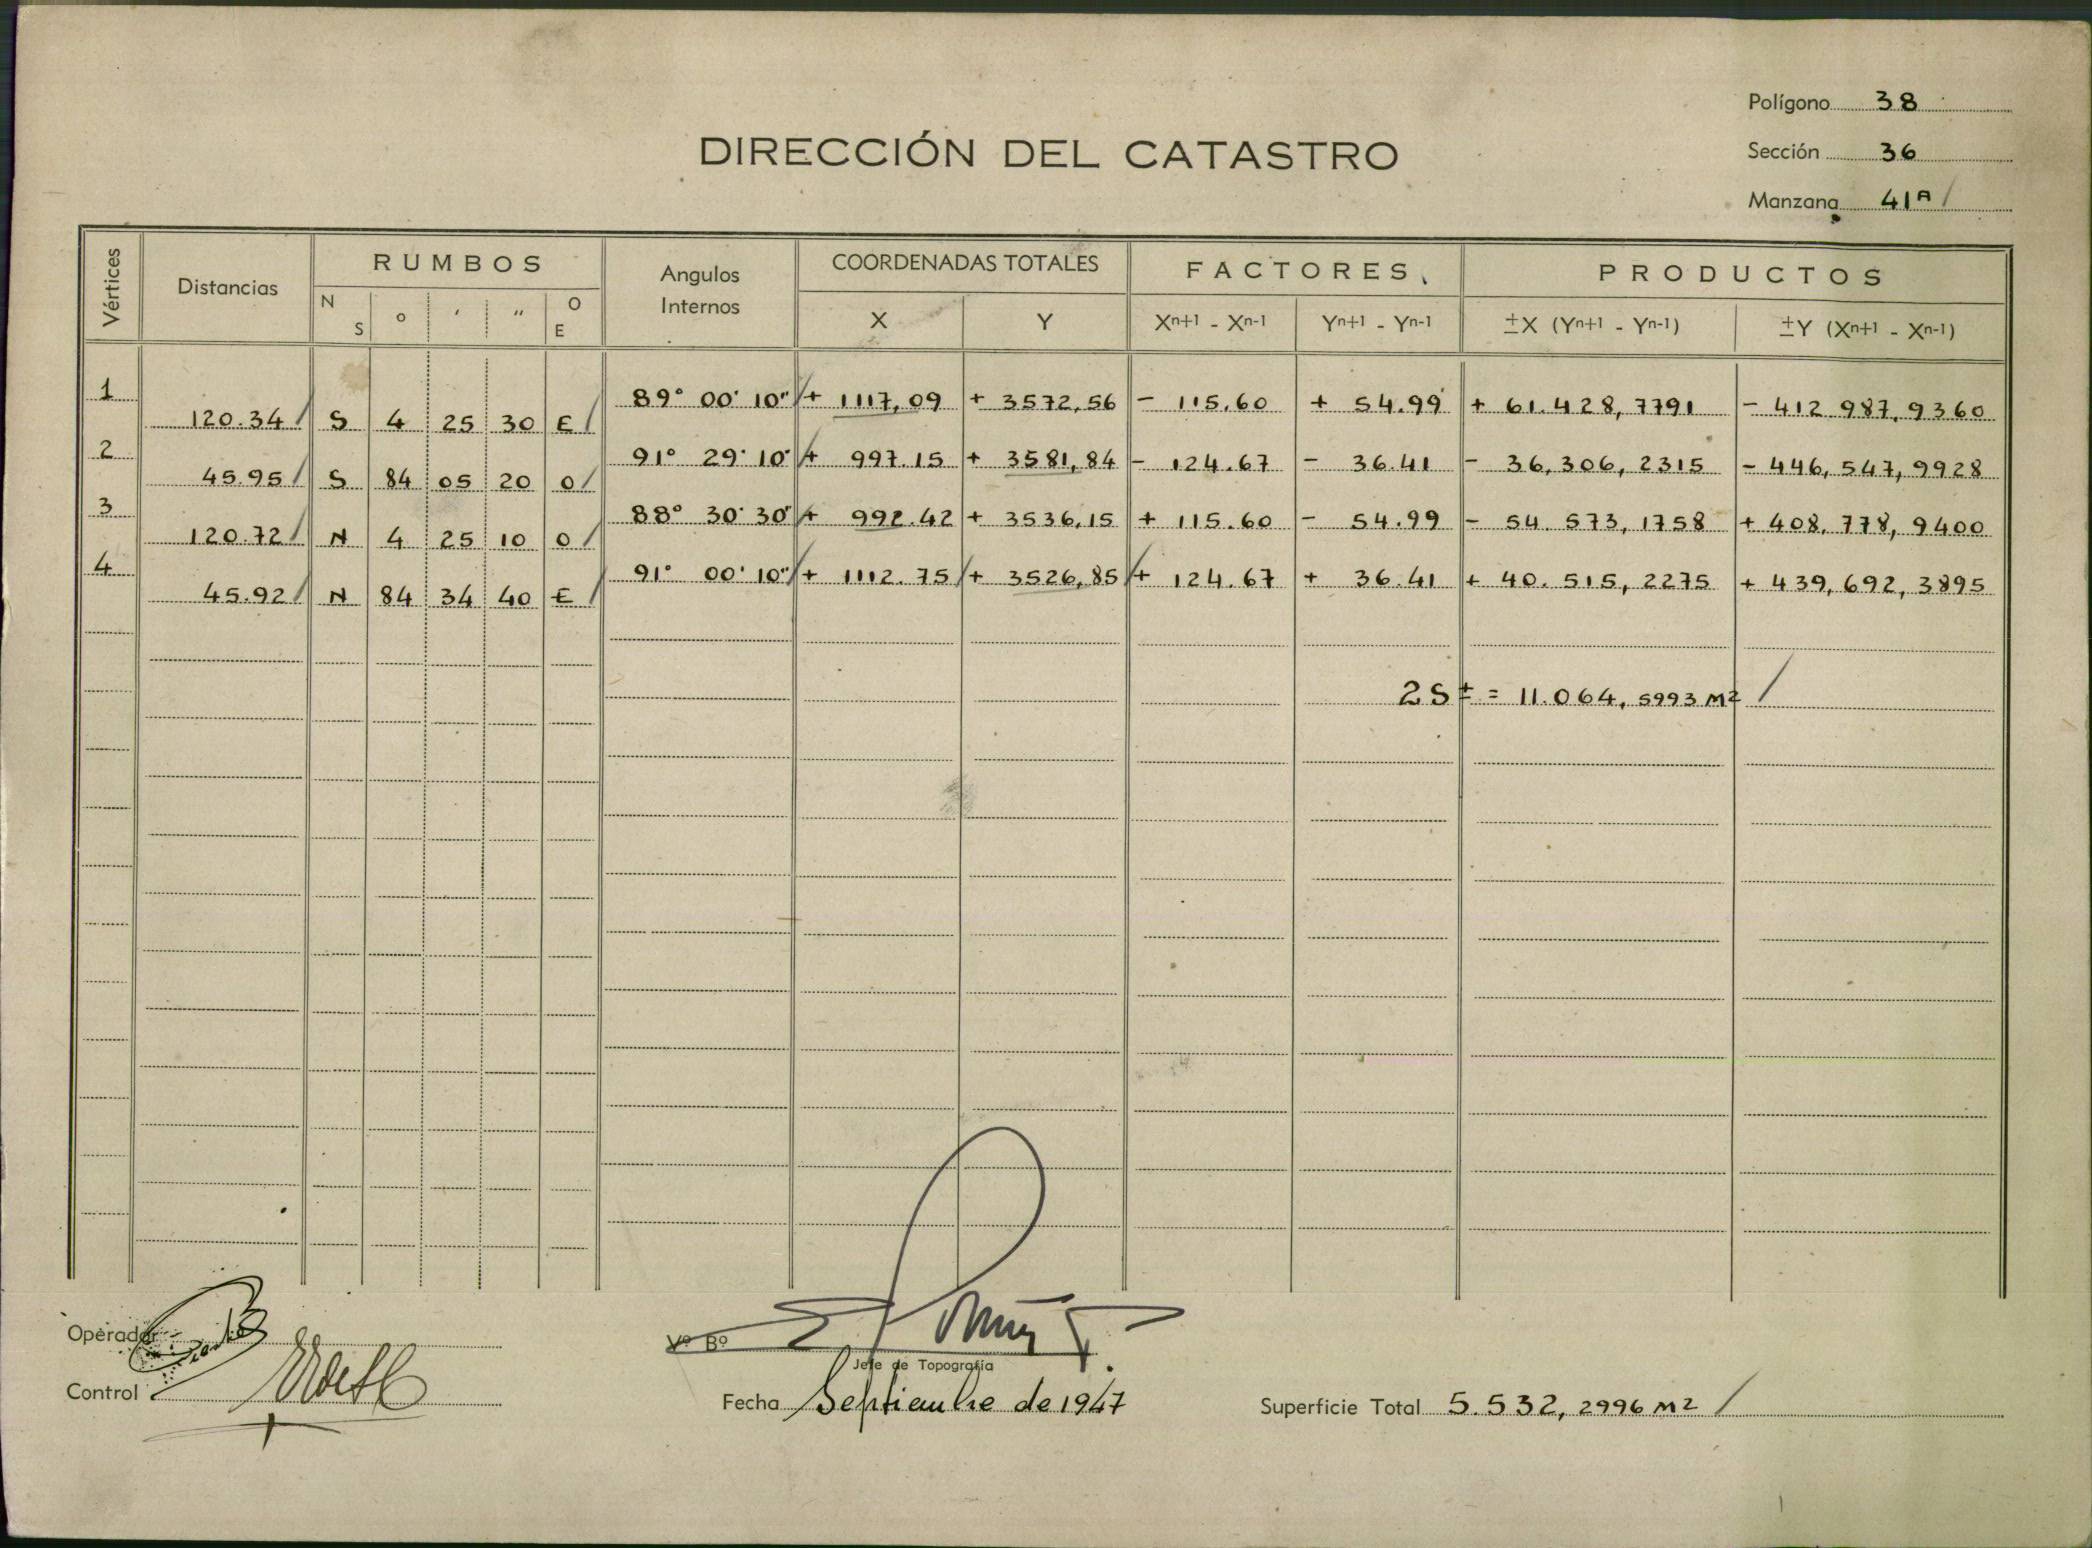 Polígono 38
DIRECCIÓN DEL CATASTRO
Sección 36
Manzana 41A
Vértices Distancias RUMBOS Angulos Internos COORDENADAS TOTALES FACTORES PRODUCTOS
N S ° ' " O E X Y Xn+1 - Xn-1 Yn+1 - Yn-1 ±X (Yn+1 - Yn-1) ±Y (Xn+1 - Xn-1)
1 89° 00' 10" + 1117,09 + 3572,56 - 115.60 + 54.99 + 61.428,7791 - 412 987,9360
120.34 S 4 25 30 E
2 91° 29' 10" + 997.15 + 3581,84 - 124.67 - 36.41 - 36,306,2315 - 446,547,9928
45.95 S 84 05 20 O
3 88° 30' 30" + 992.42 + 3536,15 + 115.60 - 54.99 - 54 573,1758 + 408,778,9400
120.72 N 4 25 10 O
4 91° 00' 10" + 1112.75 + 3526,85 + 124.67 + 36.41 + 40.515,2275 + 439,692,3895
45.92 N 84 34 40 E
2S ± = 11.064,5993 M2
Operador
Vº Bº
Jefe de Topografía
Control
Fecha Septiembre de 1947
Superficie Total 5.532,2996 M2